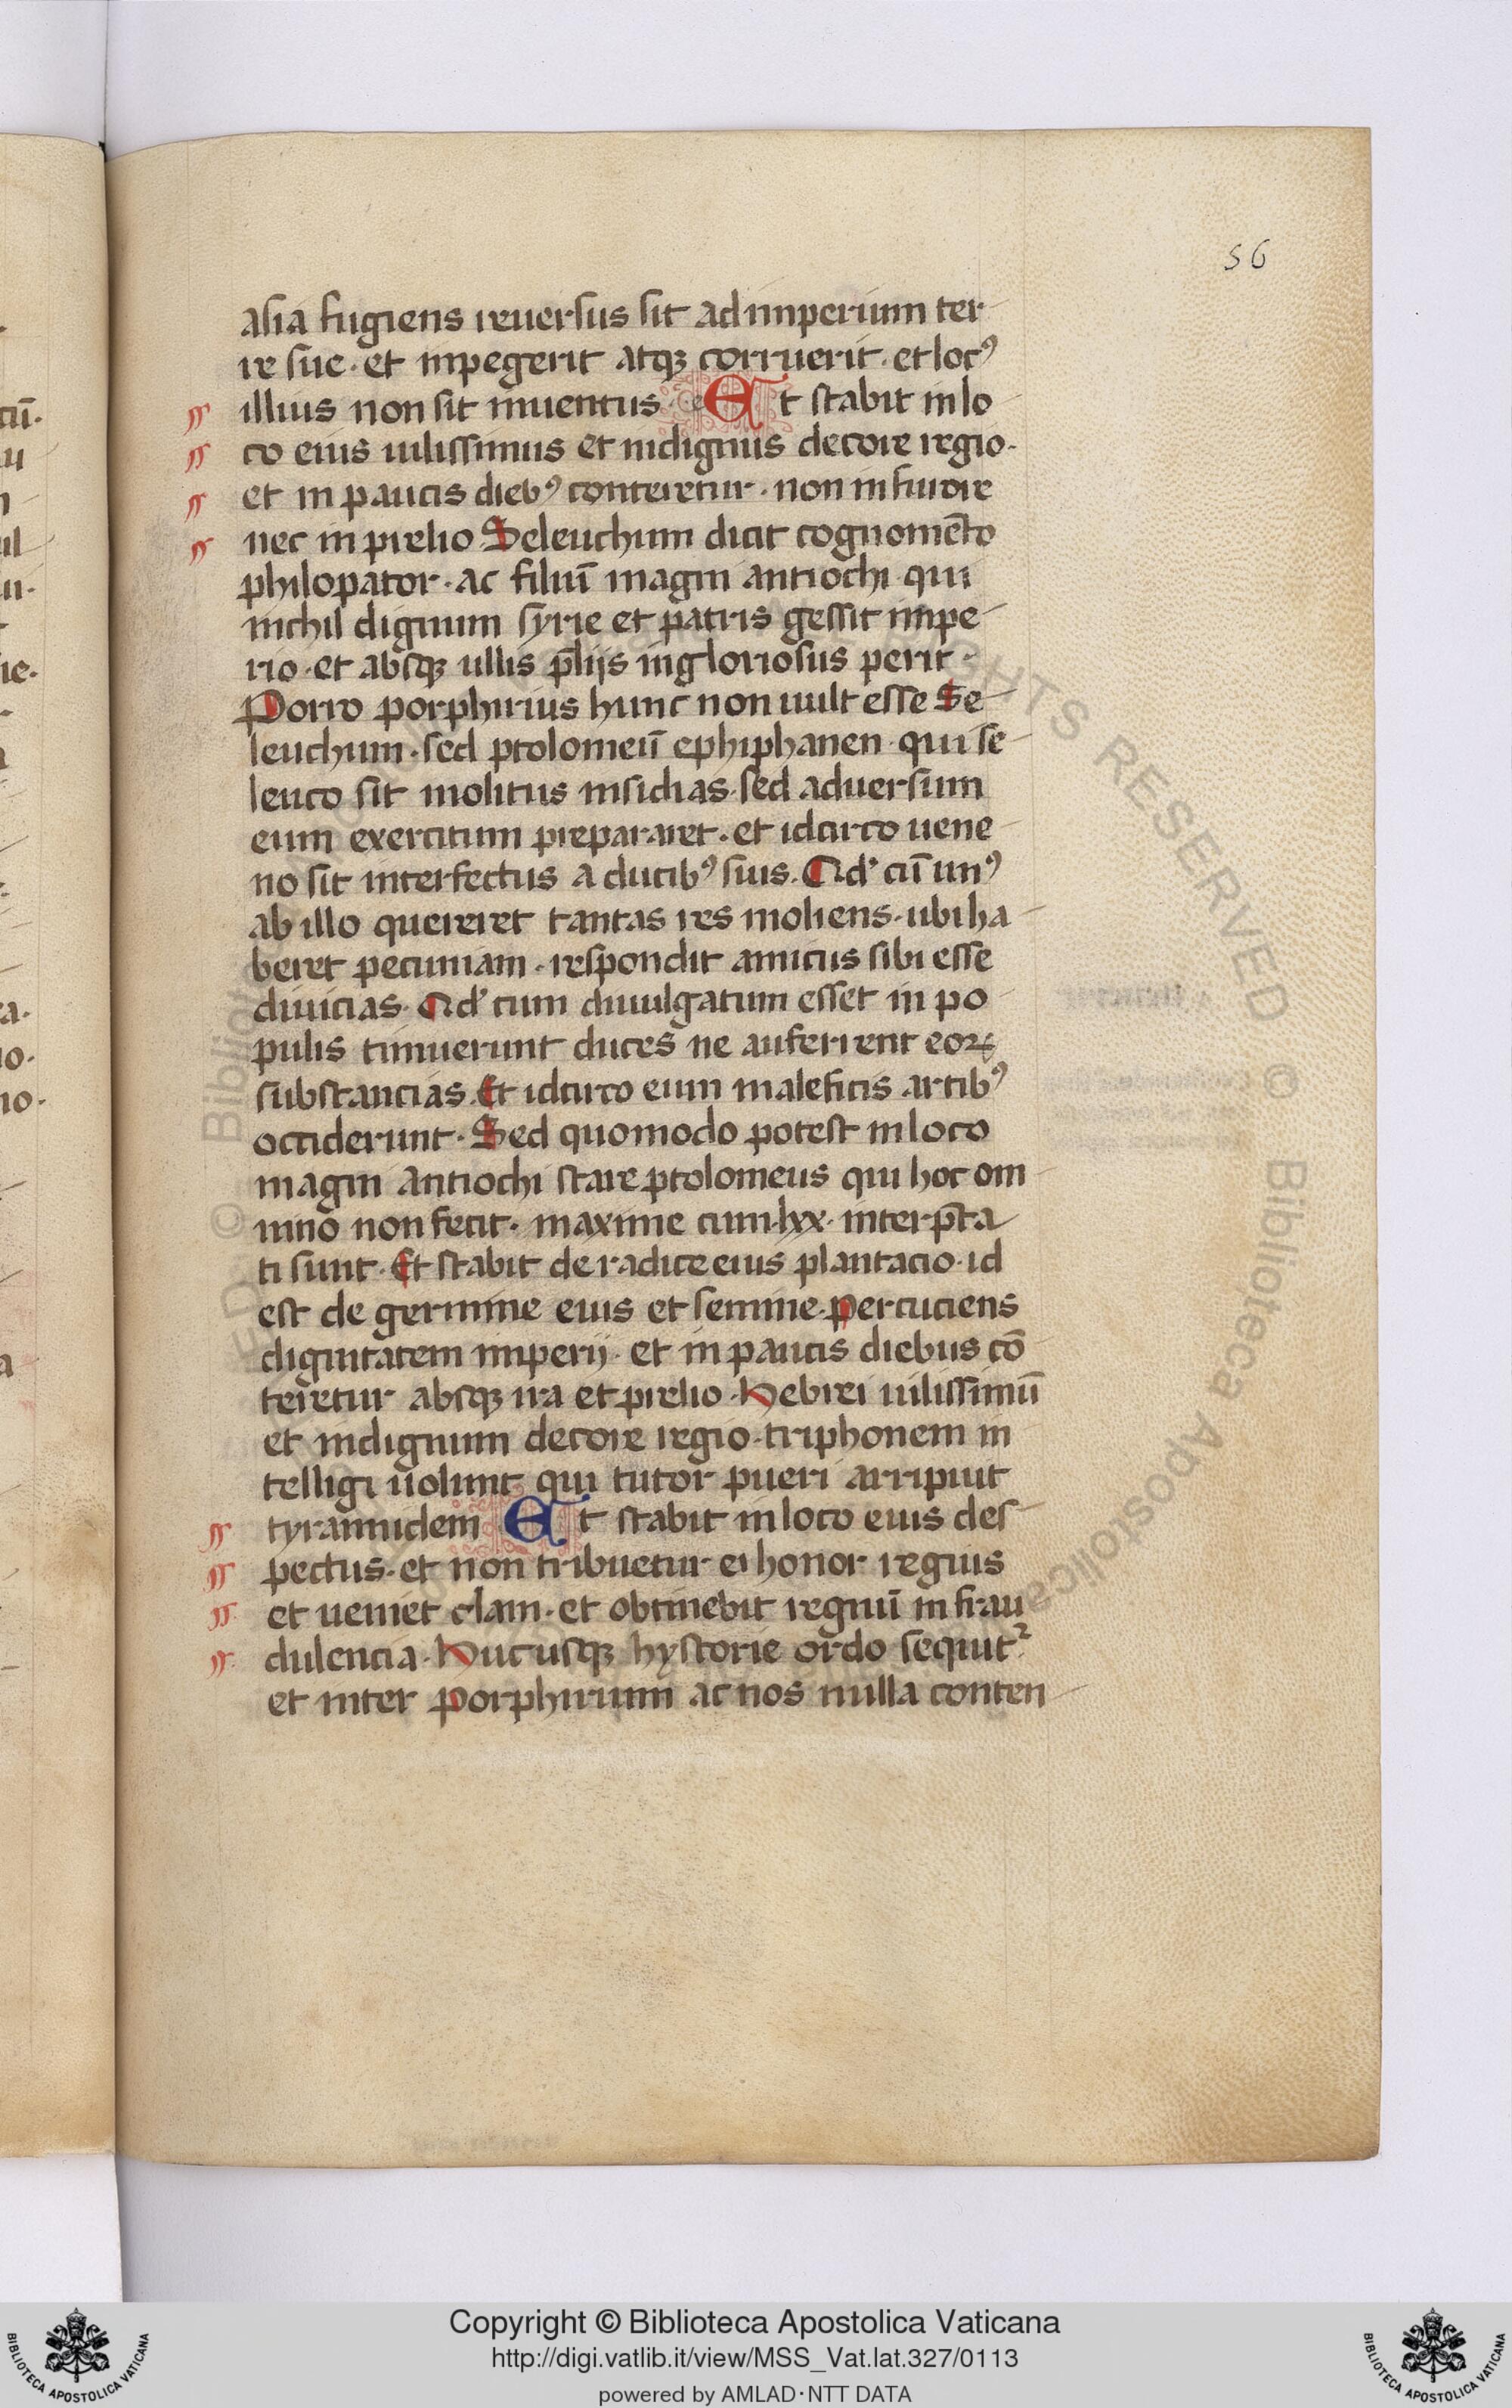 56
asia fugiens reuersus sit ad imperium ter
re sue · et inpegerit atqꝫ corruerit · et locꝰ
illius non sit inuentus · Et stabit in lo
co eius uilissimus et indignus decore regio ·
et in paucis diebꝰ conteretur · non in furore
nec in prelio Seleuchum dicit cognomēto
philopator · ac filiū magni antiochi · qui
nichil dignum syrie et patris gessit impe
rio · et absqꝫ ullis p̄lijs ingloriosus perit ·
Porro porphirius hunc non uult esse Se
leuchum · sed ptolomeū ephiphanen · qui se
leuco sit molitus insidias · sed aduersum
eum exercitum prepararet · et idcirco uene
no sit interfectus a ducibꝰ suis · Qd' cū unꝰ
ab illo quereret tantas res moliens · ubi ha
beret pecuniam · respondit amicus sibi esse
diuicias · Qd' cum diuulgatum esset in po
pulis timuerunt duces ne auferrent eoꝝ
substancias · Et idcirco eum maleficis artibꝰ
occiderunt · Sed quomodo potest in loco
magni antiochi stare ptolomeus qui hoc om
nino non fecit · maxime cum · lxx · interp̄ta
ti sunt · Et stabit de radice eius plantacio · id
est de germine eius et semine · percuciens
dignitatem imperij · et in paucis diebus cō
teretur absqꝫ ira et prelio · Hebrei uilissimū
et indignum decore regio · triphonem in
telligi uolunt qui tutor pueri arripuit
tyrannidem Et stabit in loco eius des
pectus · et non tribuetur ei honor regius
et ueniet clam · et obtinebit regnū in frau
dulencia · Hucusqꝫ hystorie ordo sequit᷑
et inter porphirium ac nos nulla conten
Copyright © Biblioteca Apostolica Vaticana
http://digi.vatlib.it/view/MSS_Vat.lat.327/0113
powered by AMLAD·NTT DATA